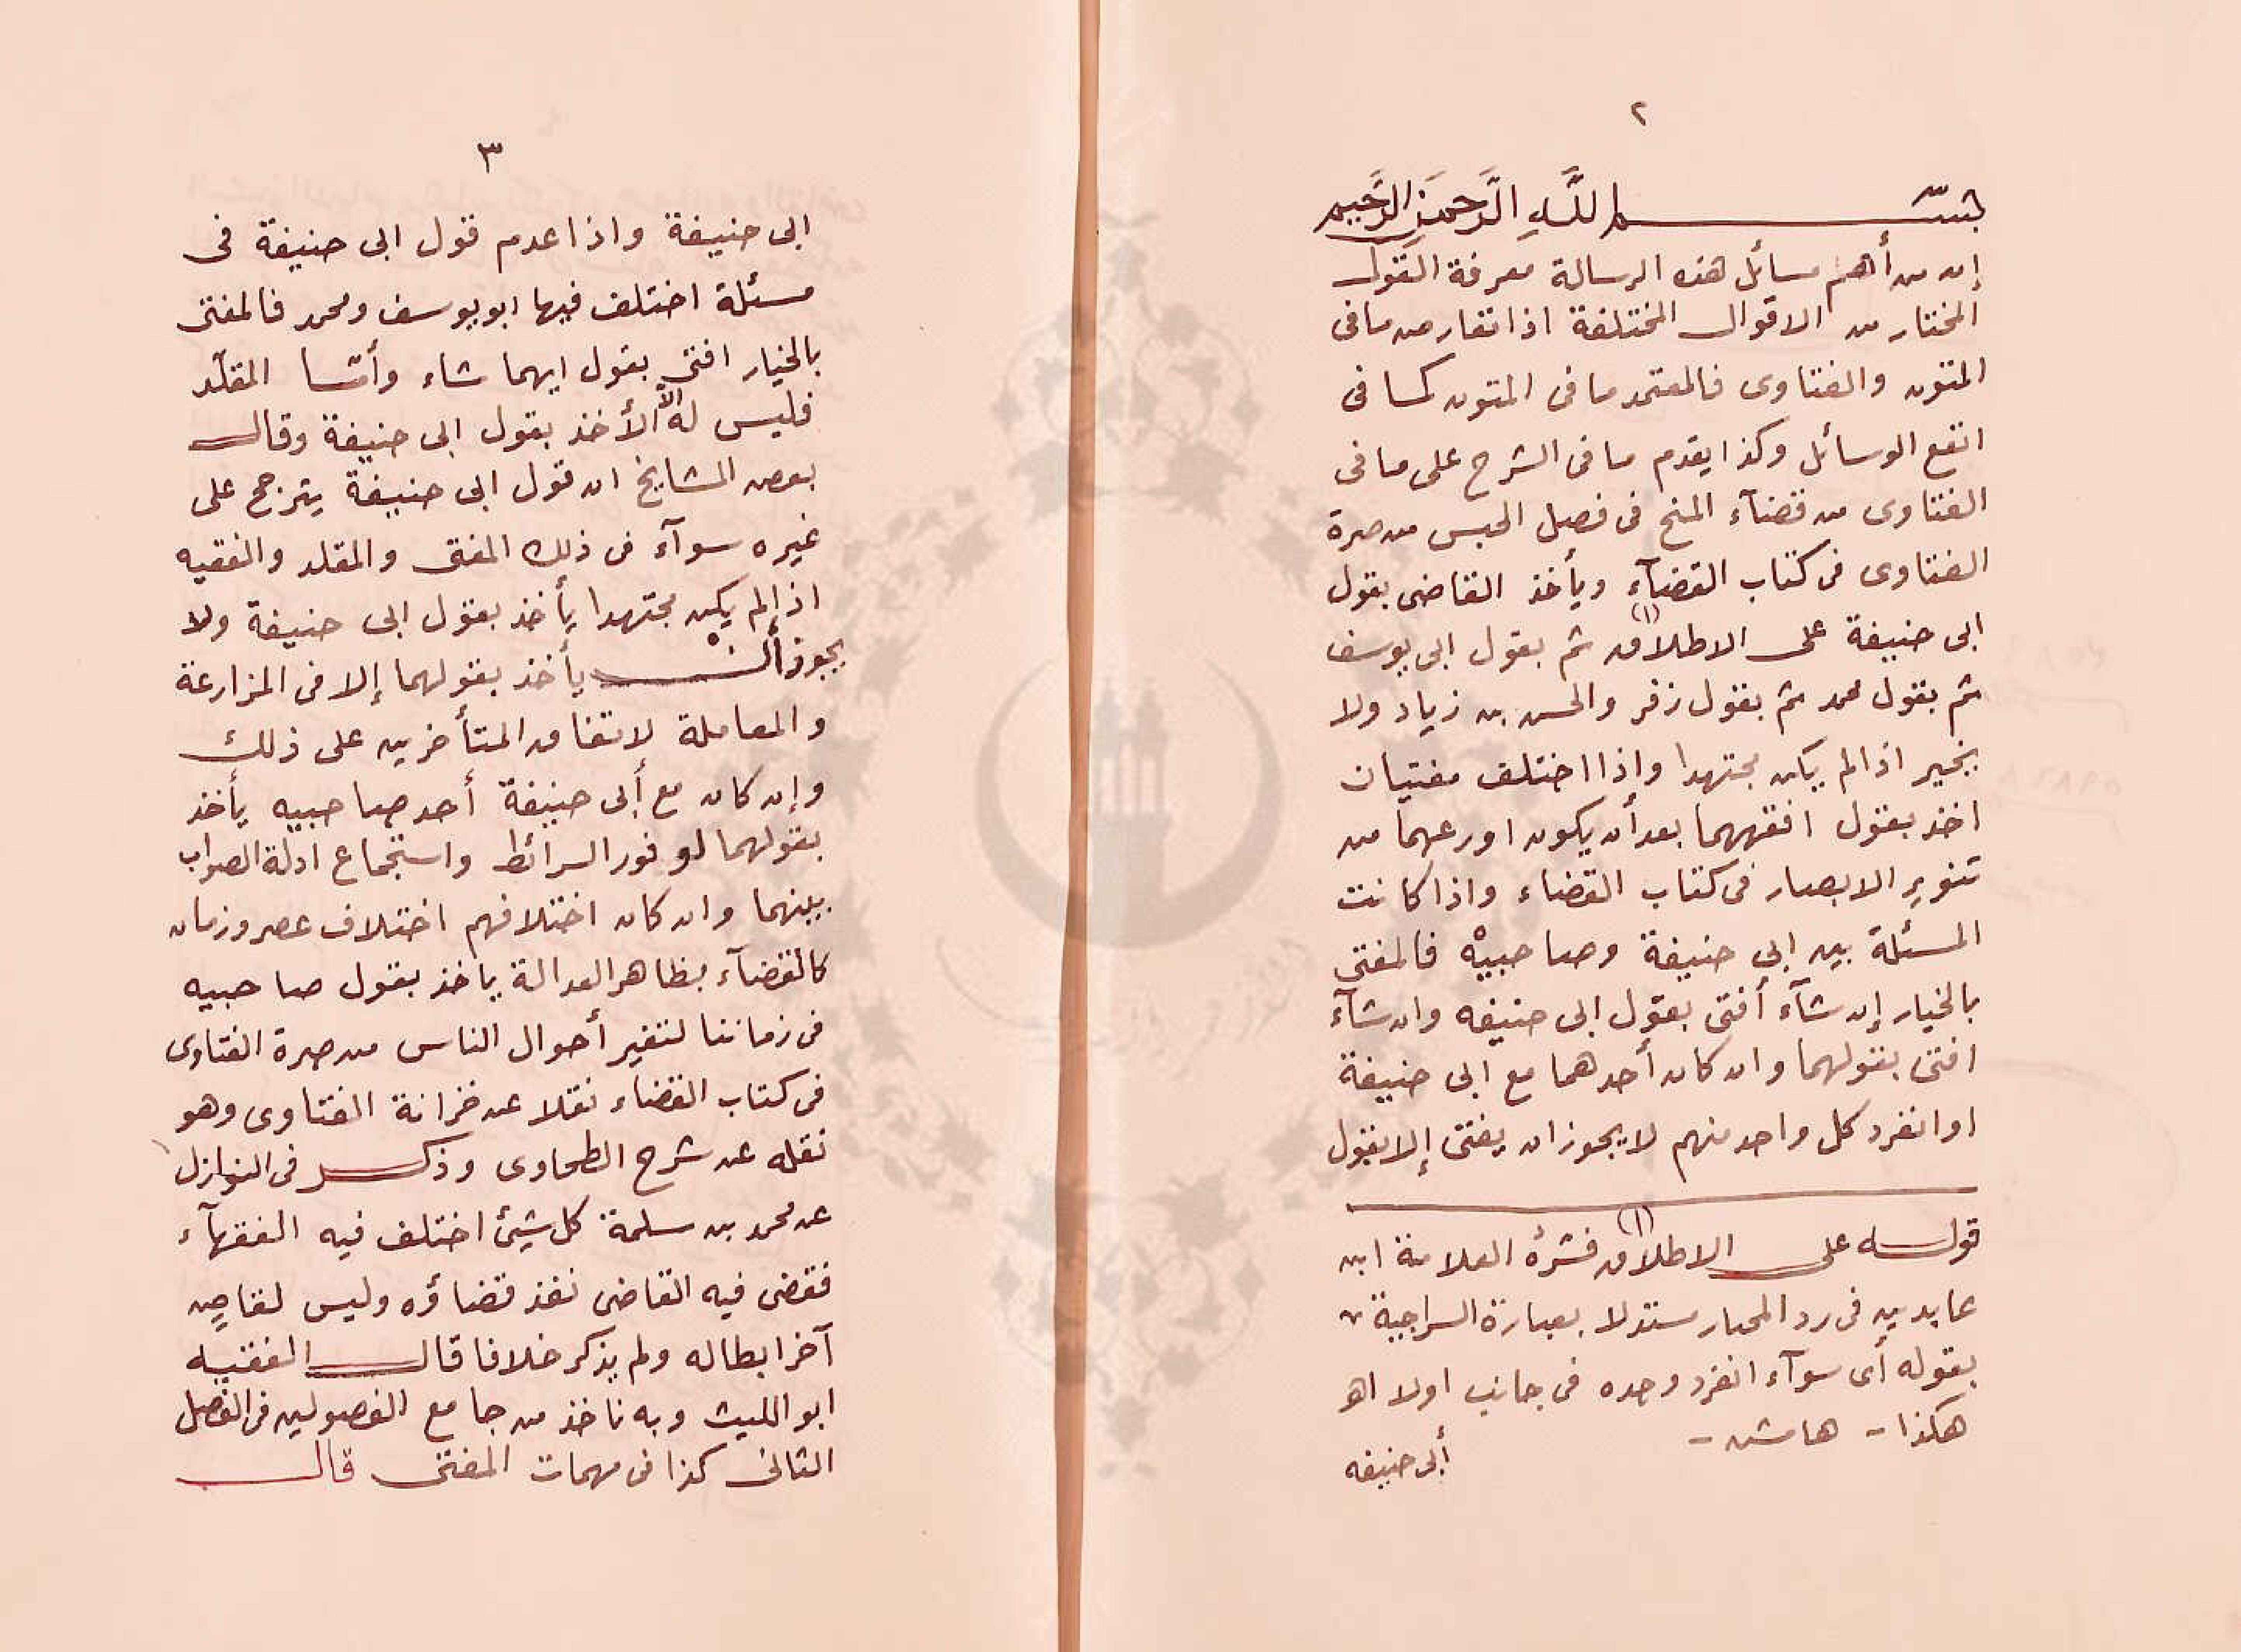 ٢
بسم الله الرَّحمنِ الرَّحيم
إن من أهم مسائل هذه الرسالة معرفة القول
المختار من الاقوال المختلفة اذا تعارض ما فى
المتون والفتاوى فالمعتمد ما فى المتون كما فى
انفع الوسائل وكذا يقدم ما فى الشرح على ما فى
الفتاوى من قضآء المنح فى فصل الحبس من صرة
الفتاوى فى كتاب القضآء ويأخذ القاضى بقول
ابى حنيفة على الاطلاق (١) ثم بقول ابى يوسف
ثم بقول محمد ثم بقول زفر والحسن بن زياد ولا
يخير اذا لم يكن مجتهدا واذا اختلف مفتيان
اخذ بقول افقههما بعد أن يكون اورعهما من
تنوير الابصار فى كتاب القضاء واذا كانت
المسئلة بين ابي حنيفة وصاحبيْه فالمفتى
بالخيار إن شآء أفتى بقول ابى حنيفه وان شآء
افتى بقولهما وان كان أحدهما مع ابى حنيفة
او انفرد كل واحد منهم لا يجوز ان يفتى إلا بقول
قوله على الاطلاق (١) فسّره العلامة ابن
عابدين فى رد المحتار مستدلا بعبارة السراجية
بقوله أى سوآء انفرد وحده فى جانب اولا اهـ
هكذا - هامش -
أبى حنيفه
٣
ابى حنيفة واذا عدم قول ابى حنيفة فى
مسئلة اختلف فيها ابو يوسف ومحمد فالمفتى
بالخيار افتى بقول ايهما شاء وأمّا المقلّد
فليس له الّا الأخذ بقول ابى حنيفة وقال
بعض المشايخ ان قول ابى حنيفة يترجح على
غيره سوآء فى ذلك المفتى والمقلد والفقيه
اذا لم يكن مجتهدا يأخذ بقول ابى حنيفة ولا
يجوز أنْ يأخذ بقولهما إلا فى المزارعة
والمعاملة لاتفاق المتأخرين على ذلك
وإن كان مع أبى حنيفة أحد صاحبيه يأخذ
بقولهما لوفور السرائط واستجماع ادلة الصواب
بينهما وان كان اختلافهم اختلاف عصر وزمان
كالقضآء بظاهر العدالة ياخذ بقول صاحبيه
فى زماننا لتغير أحوال الناس من صرة الفتاوى
فى كتاب القضاء نقلا عن خزانة الفتاوى وهو
نقله عن شرح الطحاوى وذكر فى النوازل
عن محمد بن سلمة كل شيئ اختلف فيه الفقهآء
فقضى فيه القاضى نفذ قضاؤه وليس لقاضٍ
آخر ابطاله ولم يذكر خلافا قال الفقيه
ابو الليث وبه ناخذ من جامع الفصولين فى الفصل
الثانى كذا فى مهمات المفتى قال